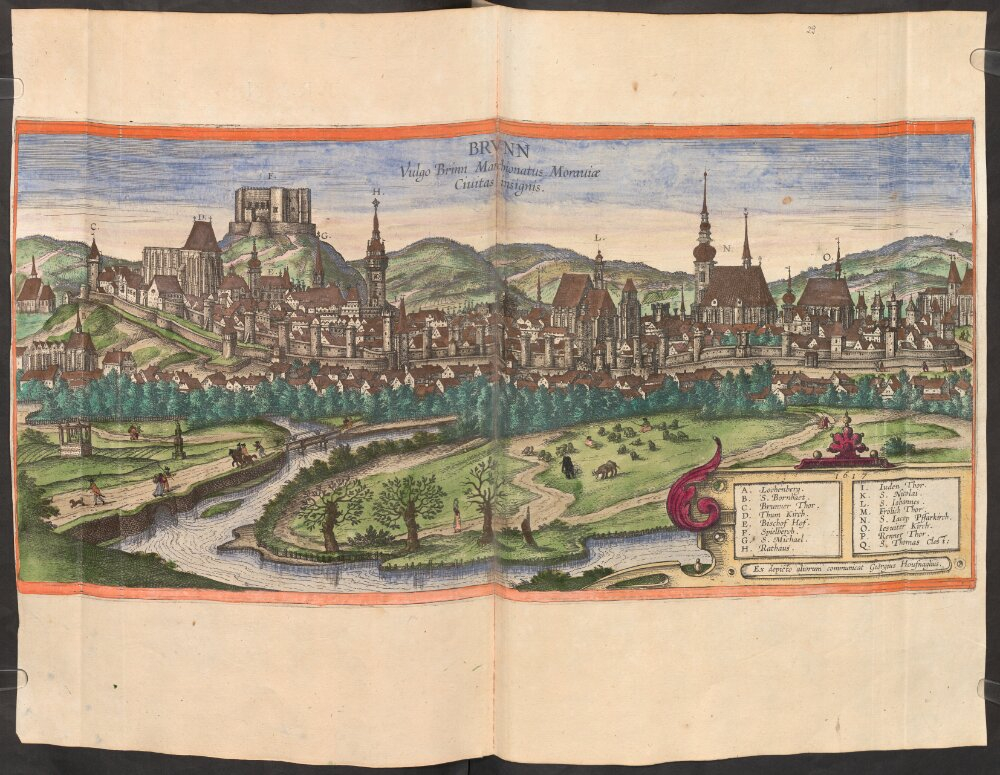 BRVNN
Vulgo Brinn Marchionatus Moraviæ
Civitas insignis.
F.
H.
C.
D.
G.
L.
N.
O.
1617
A. Lochenberg.
B. S. Bernhart.
C. Brunner Thor.
D. Thum Kirch.
E. Bischof Hof.
F. Spielberch.
G. S. Michael.
H. Rathaus.
I. Iuden Thor.
K. S. Niclas.
L. S. Iohannes.
M. Frölich Thor.
N. S. Iacop Pfarkirch.
O. Iesuiter Kirch.
P. Renner Thor.
Q. S. Thomas
Ex depicto communicat Georgius Houfnaglius.